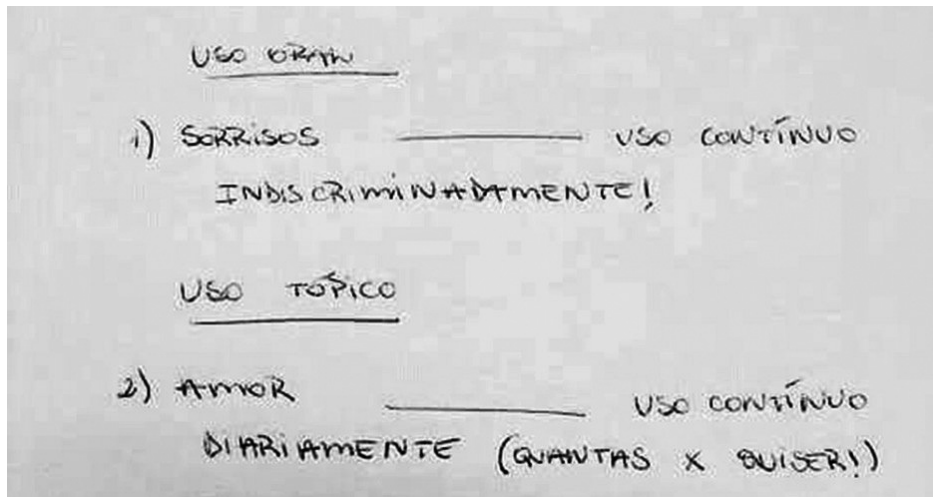 USO ORAL
1) SORRISOS ——— USO CONTÍNUO
INDISCRIMINADAMENTE!
USO TÓPICO
2) AMOR ——— USO CONTÍNUO
DIARIAMENTE (QUANTAS X QUISER!)